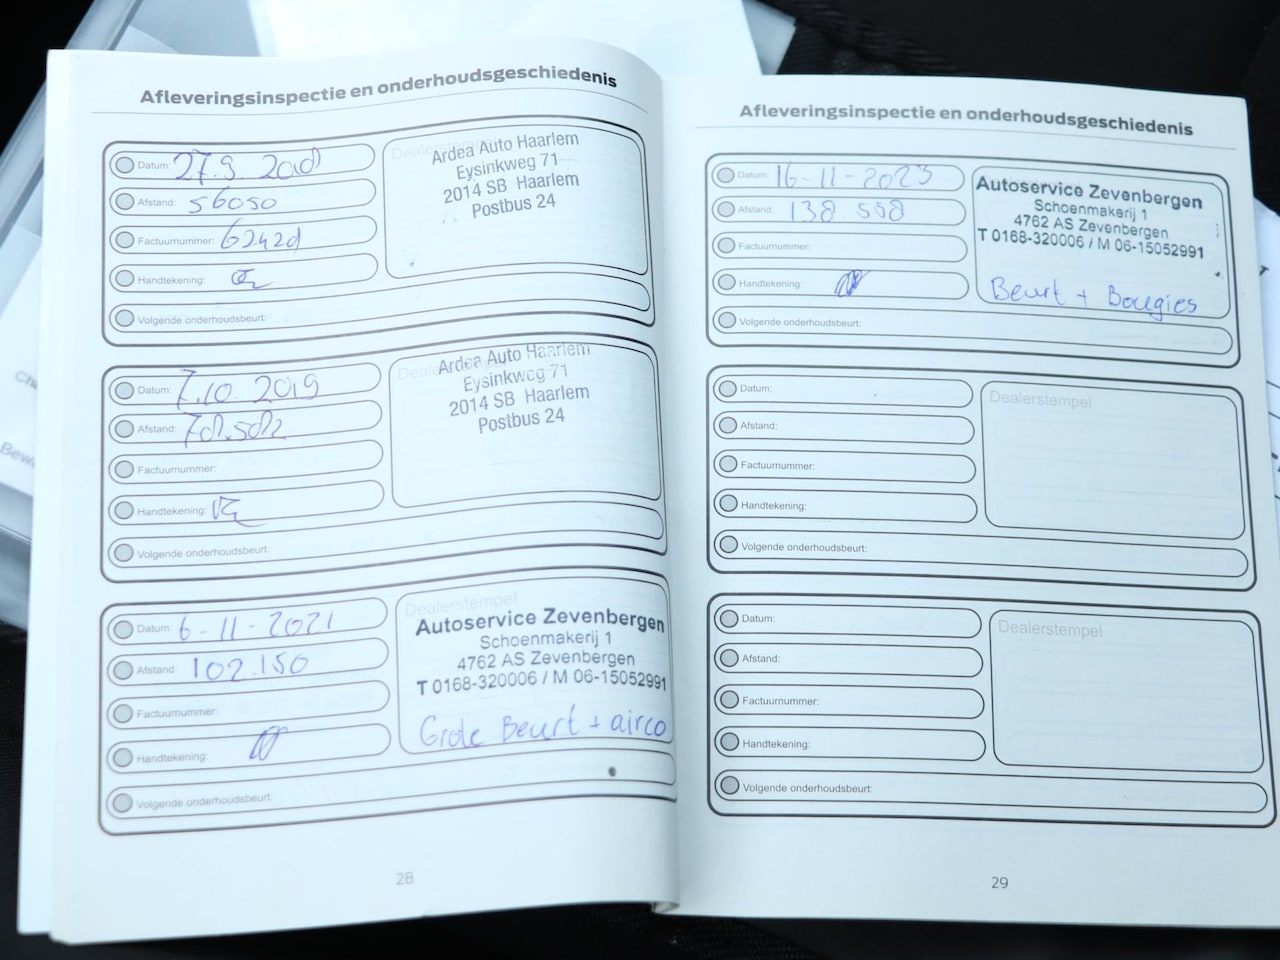 Afleveringsinspectie en onderhoudsgeschiedenis
Datum:
Afstand: 56050
Factuurnummer:
Handtekening:
Volgende onderhoudsbeurt:
Ardea Auto Haarlem
Eysinkweg 71
2014 SB Haarlem
Postbus 24
Datum: 7.10.2019
Afstand:
Factuurnummer:
Handtekening:
Volgende onderhoudsbeurt:
Ardea Auto Haarlem
Eysinkweg 71
2014 SB Haarlem
Postbus 24
Datum: 6-11-2021
Afstand: 102.150
Factuurnummer:
Handtekening:
Volgende onderhoudsbeurt:
Dealerstempel
Autoservice Zevenbergen
Schoenmakerij 1
4762 AS Zevenbergen
T 0168-320006 / M 06-15052991
Grote Beurt + airco
28
Afleveringsinspectie en onderhoudsgeschiedenis
Datum: 16-11-2023
Afstand: 138.558
Factuurnummer:
Handtekening:
Volgende onderhoudsbeurt:
Autoservice Zevenbergen
Schoenmakerij 1
4762 AS Zevenbergen
T 0168-320006 / M 06-15052991
Beurt + Bougies
Datum:
Afstand:
Factuurnummer:
Handtekening:
Volgende onderhoudsbeurt:
Dealerstempel
Datum:
Afstand:
Factuurnummer:
Handtekening:
Volgende onderhoudsbeurt:
Dealerstempel
29